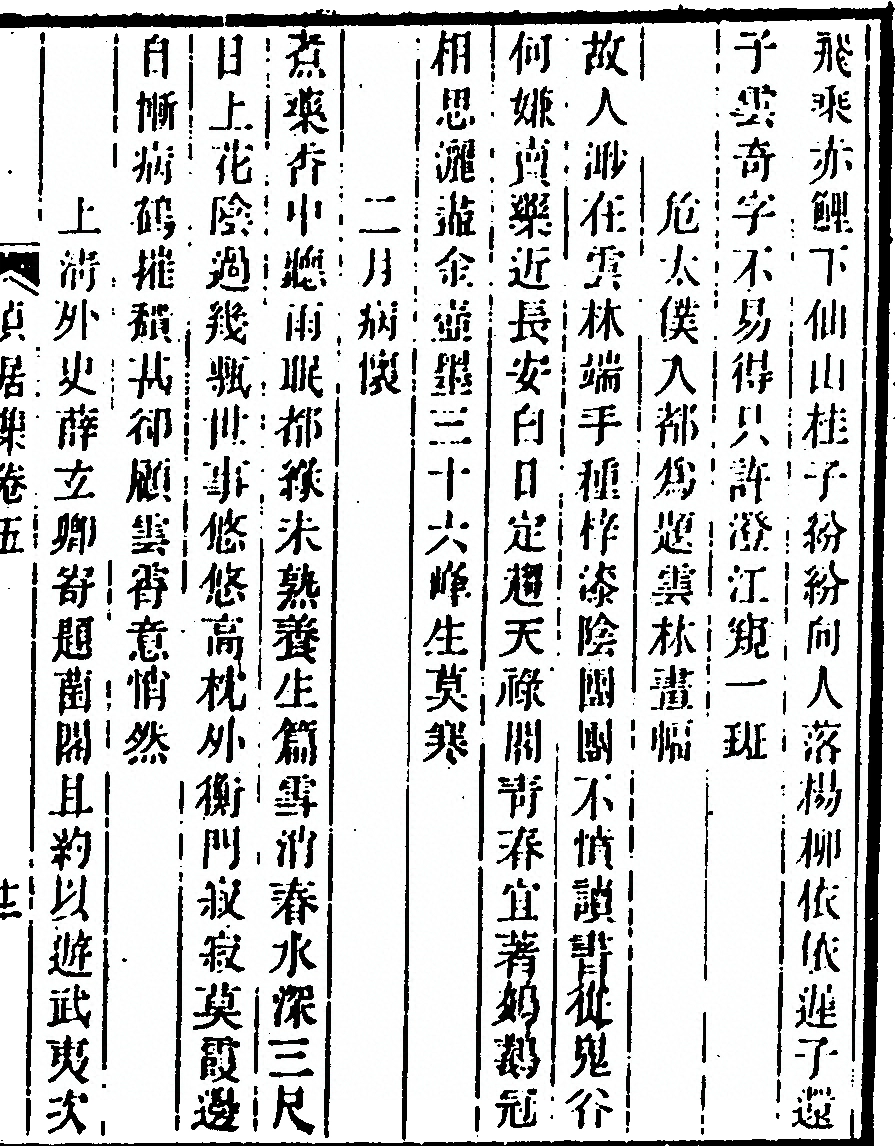 飛乘赤鯉下仙山桂子紛紛向人落楊柳依依遲子還
子雲奇字不易得只許澄江窺一斑
危太僕入都為題雲林畫幅
故人渺在雲林端手種梓漆陰團團不憤讀書從鬼谷
何嫌賣藥近長安白日定趨天祿閣青春宜著鵔鸃冠
相思灑遍金壺墨三十六峰生莫寒
二月病懷
煮藥香中聽雨眠都緣未熟養生篇雪消春水深三尺
日上花陰過幾甎世事悠悠高枕外衡門寂寂莫霞邊
自慚病鶴摧頹甚卻顧雲霄意悄然
上清外史薛玄卿寄題菌閣且約以遊武夷次
貞居集卷五
十二